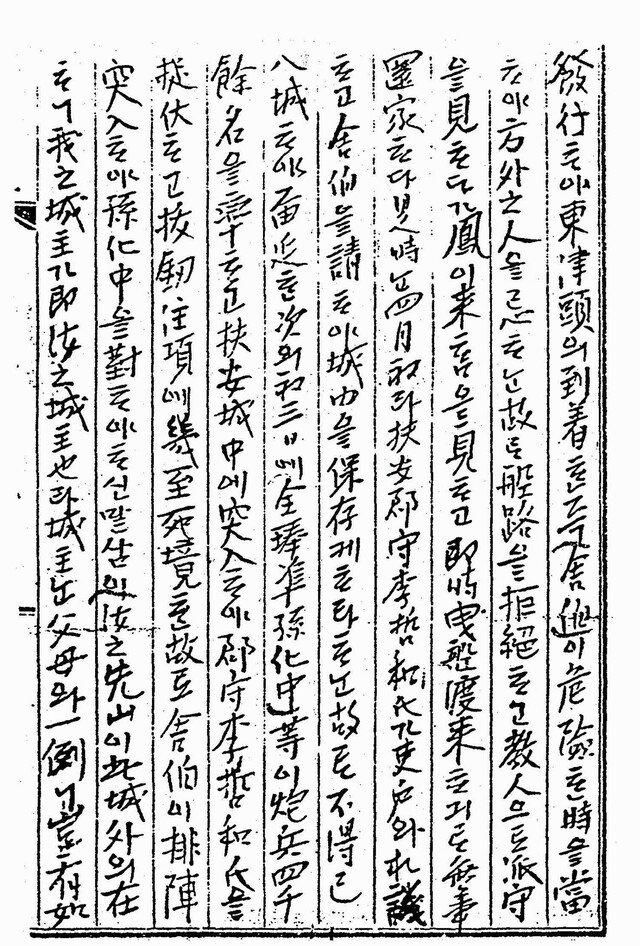 發行ᄒᆞ야東津頭의到着ᄒᆞᆫ즉舍伯이危險ᄒᆞᆫ時을當
ᄒᆞ야方外之人을忌ᄒᆞ는故로船路을拒絕ᄒᆞ고敎人으로派守
을見ᄒᆞ더가鳳이来ᄒᆞᆷ을見ᄒᆞ고即時曳船渡来ᄒᆞ긔로無事
還家ᄒᆞ다見時는四月初라扶安郡守李哲和氏가吏戶와相議
ᄒᆞ고舍伯을請ᄒᆞ야城內을保存케ᄒᆞ라ᄒᆞ는故로不得已
八城ᄒᆞ야留延ᄒᆞᆫ次의初三日에全琫準孫化中等이炮兵四千
餘名을率ᄒᆞ고扶安城中에突入ᄒᆞ야郡守李哲和氏을
捉伏ᄒᆞ고拔釰注項에幾至死境ᄒᆞᆫ故로舍伯이排陣
突入ᄒᆞ야孫化中을對ᄒᆞ야ᄒᆞ신말삼의汝之先山이此城外의在
ᄒᆞ니我之城主가即汝之城主也라城主는父母와一例니豈有如